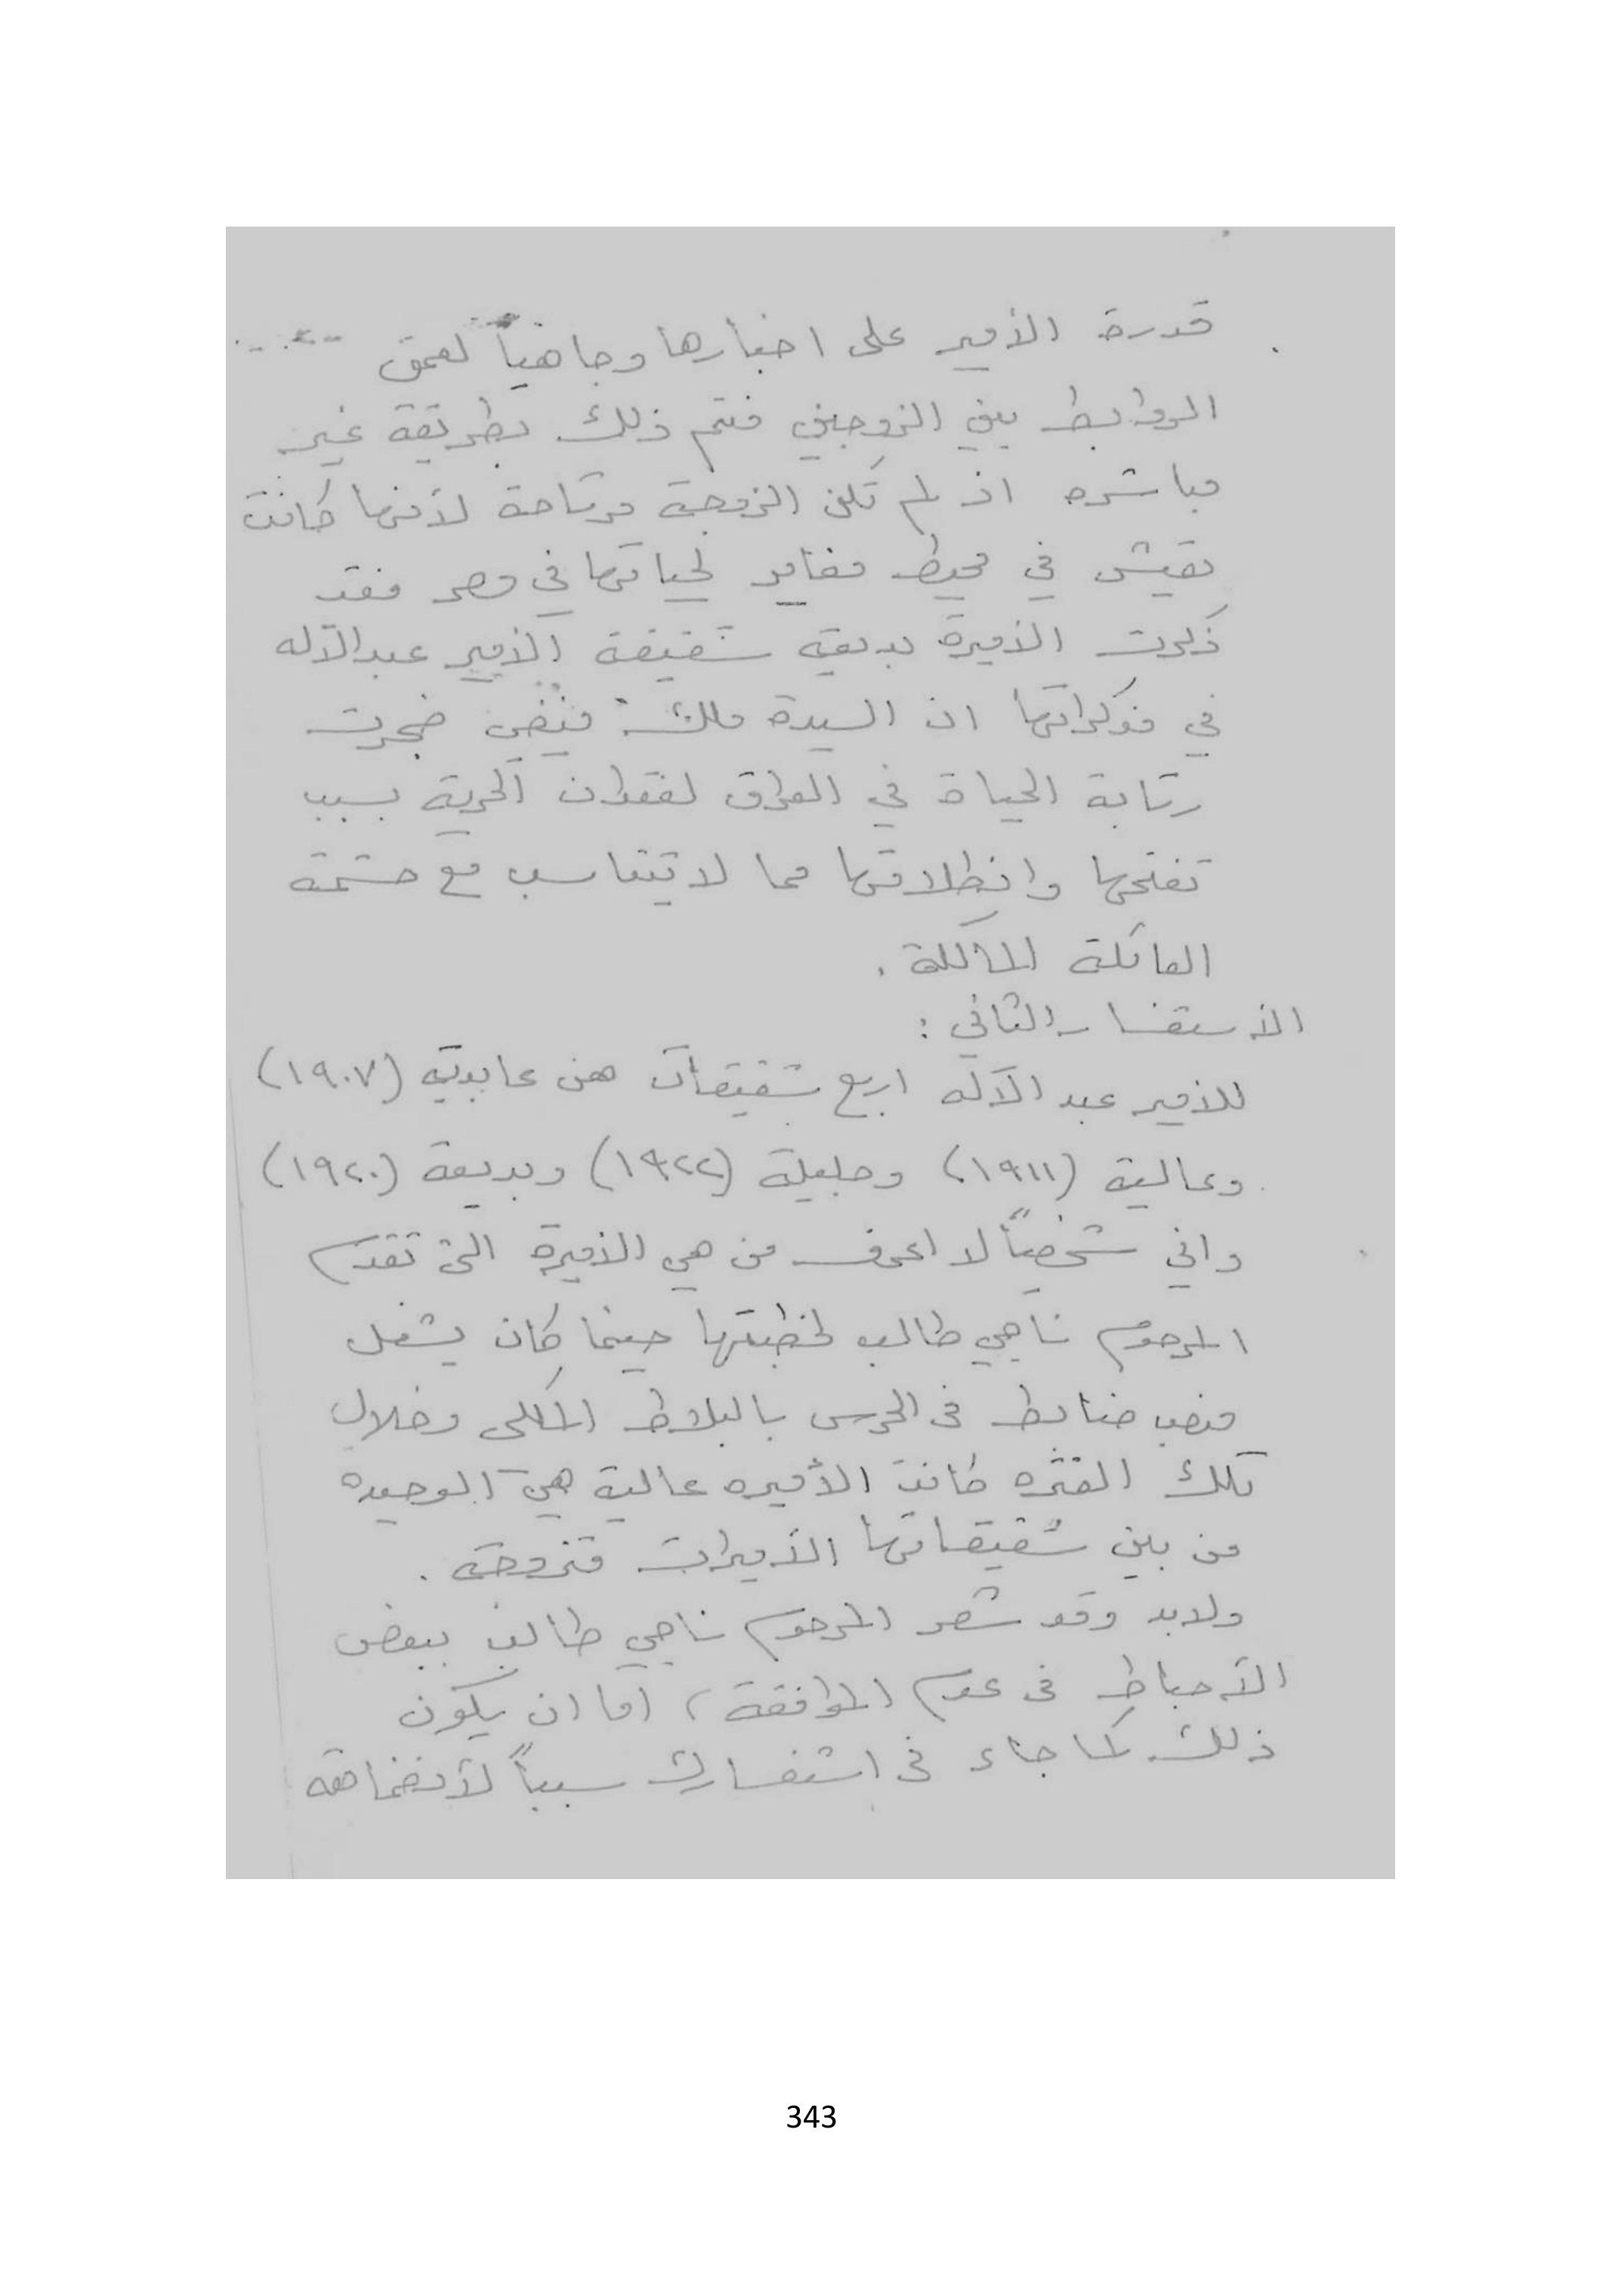 قدرة الأمير على اخبارها وجاهياً لعمق
الروابط بين الزوجين فتم ذلك بطريقة غير
مباشره اذ لم تكن الزوجة مرتاحة لأنها كانت
تعيش في محيط مغاير لحياتها في مصر فقد
ذكرت الأميرة بديعة شقيقة الأمير عبدالآله
في مذكراتها ان السيدة ملك فيضي ضجرت
رتابة الحياة في العراق لفقدان الحرية بسبب
تفتحها وانطلاقتها مما لا تتناسب مع حشمة
العائلة المالكة .
الأستفسار الثاني :
للأمير عبد الآله اربع شقيقات هن عابدية (١٩٠٧)
وعالية (١٩١١) وجليلة (١٩٢٢) وبديعة (١٩٢٠)
واني شخصياً لا اعرف من هي الأميرة التي تقدم
المرحوم ناجي طالب لخطبتها حينما كان يشغل
منصب ضابط في الحرس بالبلاط الملكي وخلال
تلك الفتره كانت الأميره عالية هي الوحيده
من بين شقيقاتها الأميرات متزوجة .
ولابد وقد شعر المرحوم ناجي طالب ببعض
الأحباط في عدم الموافقة ، اما ان يكون
ذلك كما جاء في استفسارك سبباً لأنضمامه
343